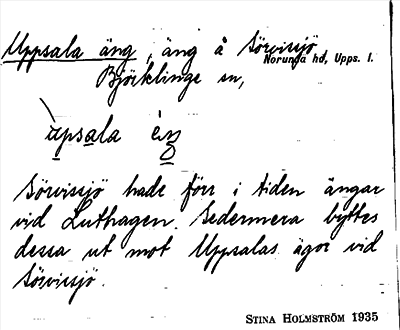 Uppsala äng, äng å Sörvissjö
Norunda hd, Upps. l.
Björklinge sn,
ùpsala èŋ
Sörvissjö hade förr i tiden ängar
vid Luthagen. Sedermera byttes
dessa ut mot Uppsalas ägor vid
Sörvissjö.
STINA HOLMSTRÖM 1935